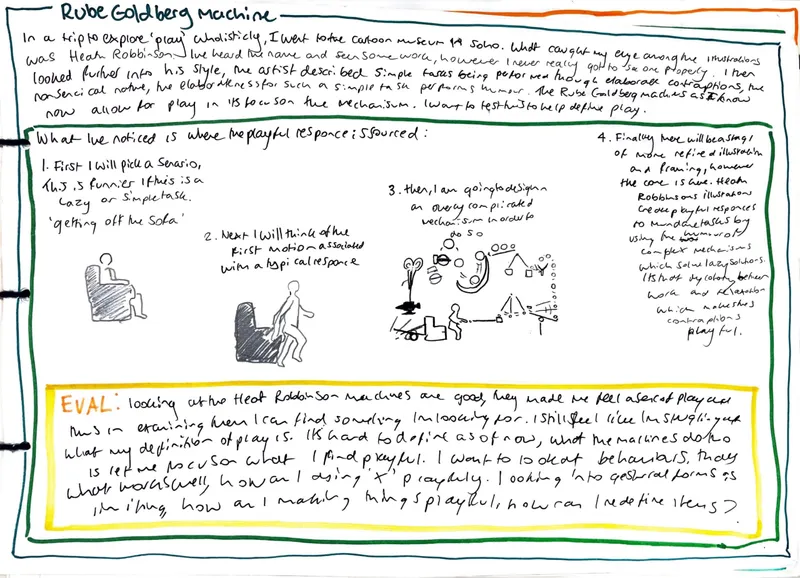 Rube Goldberg Machine
In a trip to explore 'play' wholisticly, I went to the cartoon museum in Soho. What caught my eye among the illustrations
was Heath Robbinson. Ive heard the name and seen some work, however I never really got to see one properly. I then
looked further into his style, the artist described simple tasks being performed though elaborate contraptions, the
nonsencical nature, the elaborateness for such a simple task performs humour. The Rube Goldberg machines as I know
now allow for play in its focus on the mechanism. I want to test this to help define play.
What Ive noticed is where the playful responce is sourced:
1. First I will pick a senario,
This is funnier if this is a
lazy or simple task.
'getting off the sofa'
2. Next I will think of the
first motion associated
with a typical responce
3. then, I am going to design
an overly complicated
mechanism in order to
do so
4. Finally there will be a stage
of more refined illustration
and framing, however
the core is here. Heath
Robbinsons illustrations
create playful responces
to mundane tasks by
using the humour of
complex mechanisms
which solve lazy solutions.
Its that dycotomy between
work and relaxation
which makes the
contraptions
playful.
EVAL: looking at the Heat Robbinson machines are good, they made me feel a sense of play and
thus in examining them I can find something Im looking for. I still feel like Im struggling with
what my definition of play is. Its hard to define as of now, what the machines do tho
is let me focus on what I find playful. I want to look at behaviours, thats
what works well, how am I doing 'x' playfully. I looking into gestural forms as
im itung, how am I making things playful, how can I redefine items?